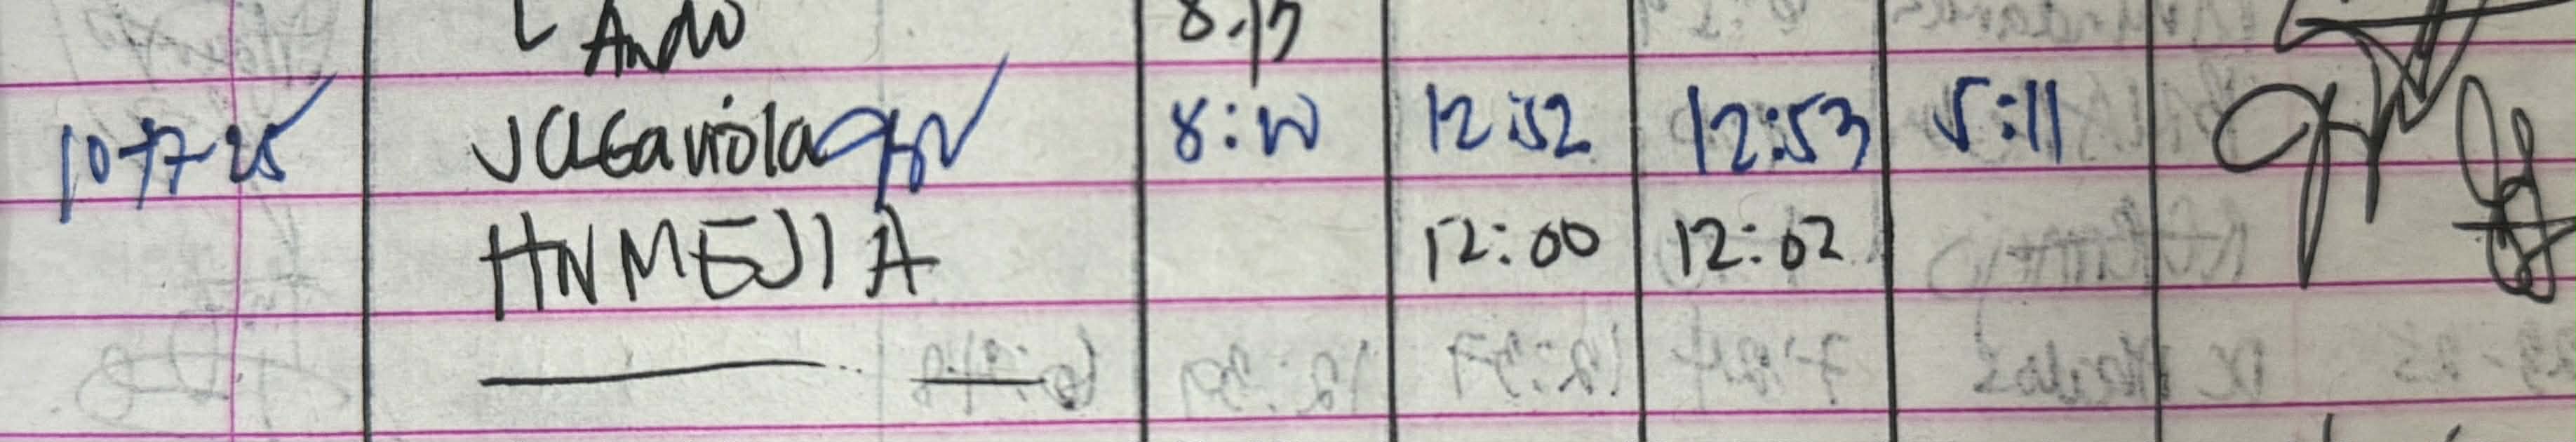 L Ando 8:17
10-17-25 JCLGaviola 12:52 12:53 5:11
HNMEJIA 12:00 12:02